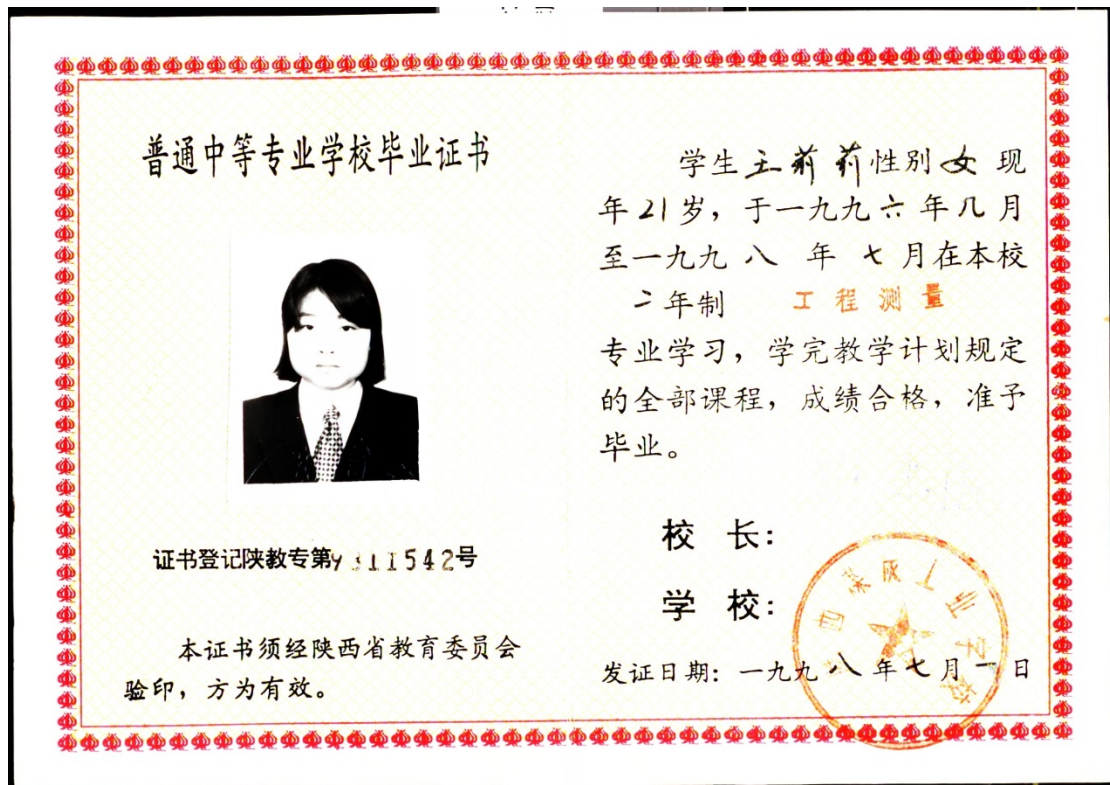 普通中等专业学校毕业证书
证书登记陕教专第9311542号
本证书须经陕西省教育委员会
验印，方为有效。
学生王莉莉性别女现
年21岁，于一九九六年九月
至一九九八年七月在本校
二年制 工程测量
专业学习，学完教学计划规定
的全部课程，成绩合格，准予
毕业。
校长：
学校：
发证日期：一九九八年七月一日